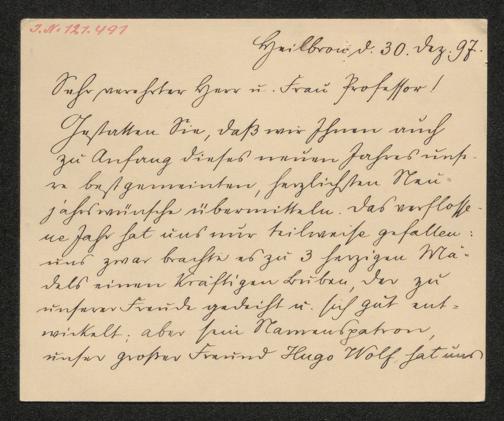 I.N. 121.491
Heilbronn d. 30. Dez. 97.
Sehr verehrter Herr u. Frau Professor!
Gestatten Sie, daß wir Ihnen auch
zu Anfang dieses neuen Jahres unse-
re bestgemeinten, herzlichsten Neu-
jahrswünsche übermitteln. Das verflosse-
ne Jahr hat uns nur teilweise gefallen:
uns zwar brachte es zu 3 herzigen Mä-
dels einen kräftigen Buben, der zu
unserer Freude gedeiht u. sich gut ent-
wickelt; aber sein Namenspatron,
unser großer Freund Hugo Wolf hat uns